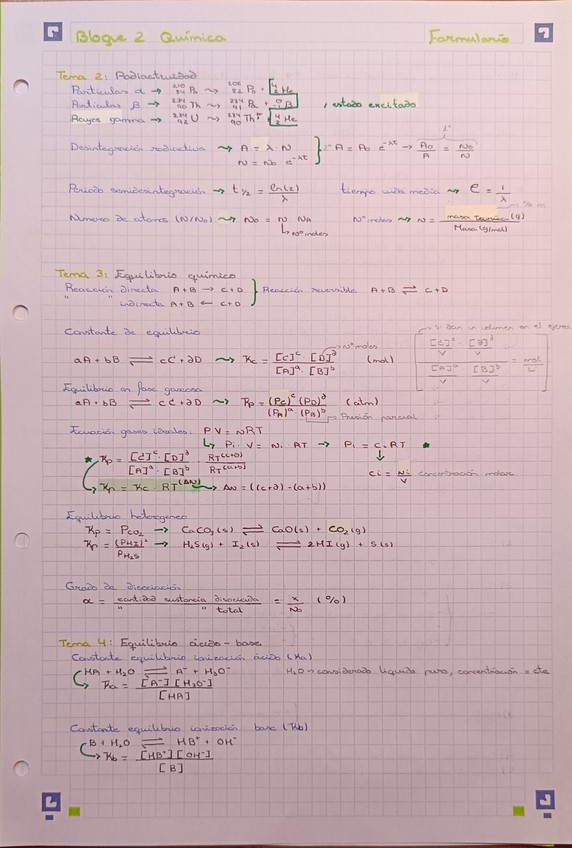 Bloque 2 Química Formulario
Tema 2: Radioactividad
Partículas α → ²¹⁰₈₄ Po ⇝ ²⁰⁶₈₂ Pb + ⁴₂ He
Partículas β → ²³⁴₉₀ Th ⇝ ²³⁴₉₁ Pa + ⁰₋₁ β , estado excitado
Rayos gamma → ²³⁴₉₂ U ⇝ ²³⁴₉₀ Th* + ⁴₂ He
Desintegración radiactiva ⇝ A = λ · N
N = N₀ e^-λt
A = A₀ e^-λt → A₀/A = N₀/N
Periodo semidesintegración → t 1/2 = ln(2)/λ tiempo vida media ⇝ τ = 1/λ
Número de atomos (N/N₀) ⇝ N₀ = n · NA Nº moles ⇝ n = masa (g) / Masa (g/mol)
↳ Nº moles
Tema 3: Equilibrio químico
Reacción directa A+B → C+D } Reacción reversible A+B ⇌ C+D
" indirecta A+B ← C+D
Constante de equilibrio
→ Si dan un volumen en el
Nº moles
aA + bB ⇌ cC + dD ⇝ Kc = [C]^c · [D]^d / [A]^a · [B]^b (mol) [C]^c/V · [D]^d/V / [A]^a/V · [B]^b/V = mol/L
Equilibrio en fase gaseosa
aA + bB ⇌ cC + dD ⇝ Kp = (Pc)^c (PD)^d / (PA)^a · (PB)^b (atm)
Presión parcial
Ecuación gases ideales: P V = nRT
↳ Pi · V = Ni · RT → Pi = Ci RT
Kp = [C]^c · [D]^d / [A]^a · [B]^b · RT^(c+d) / RT^(a+b)
Ci = Ni/V concentración molar
Kp = Kc · RT^(Δn) → Δn = ((c+d) - (a+b))
Equilibrio heterogeneo
Kp = Pco₂ → CaCO₃(s) ⇌ CaO(s) + CO₂(g)
Kp = (PHI)² / PH₂S → H₂S(g) + I₂(s) ⇌ 2HI(g) + S(s)
Grado de disociación
α = cantidad sustancia disociada / " " total = x/N₀ (%)
Tema 4: Equilibrio ácido-base
Constante equilibrio ionización ácido (Ka)
HA + H₂O ⇌ A⁻ + H₃O⁺ H₂O → considerado líquido puro, concentración = cte
Ka = [A⁻][H₃O⁺] / [HA]
Constante equilibrio ionización base (Kb)
B + H₂O ⇌ HB⁺ + OH⁻
Kb = [HB⁺][OH⁻] / [B]